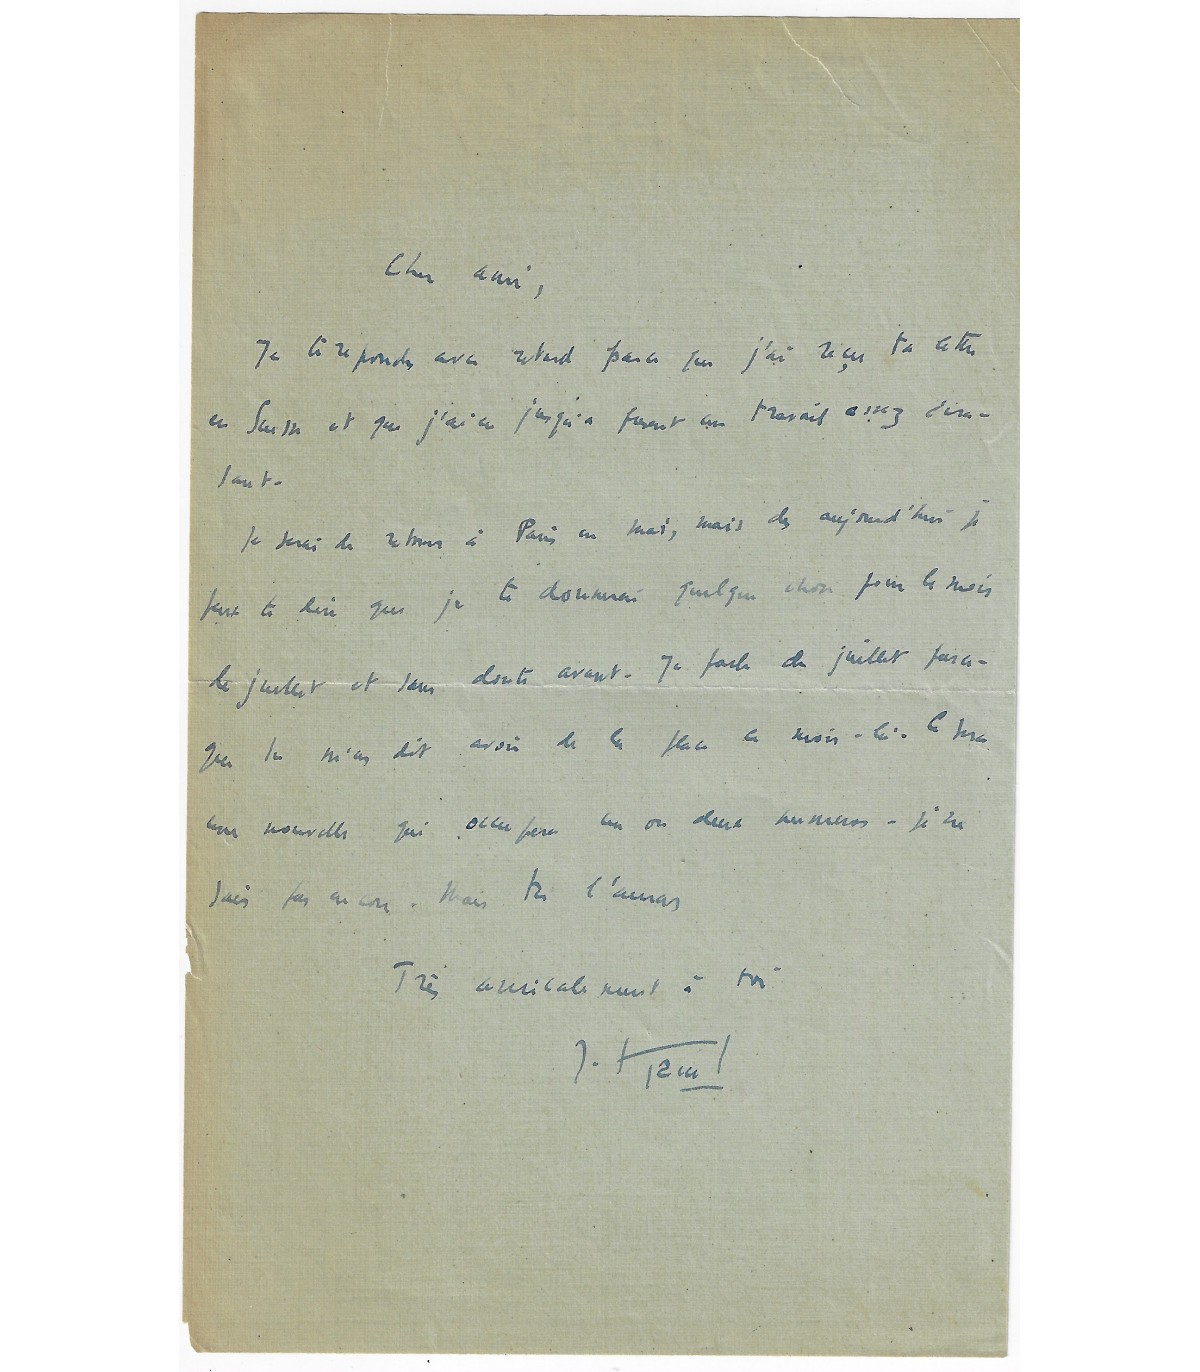 Cher ami,
Je te réponds avec retard parce que j'ai reçu ta lettre
en Suisse et que j'ai eu jusqu'à présent un travail assez écra-
sant.
Je serai de retour à Paris en mai, mais dès aujourd'hui je
peux te dire que je te donnerai quelque chose pour le mois
de juillet et sans doute avant. Je parle de juillet parce-
que tu m'as dit avoir de la place ce mois-là. Ce sera
une nouvelle qui occupera un ou deux numéros - je ne
sais pas encore. Mais tu l'auras
Très amicalement à toi
J. Kessel